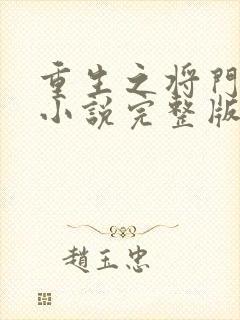 重生之将門
小説完整版
趙玉忠